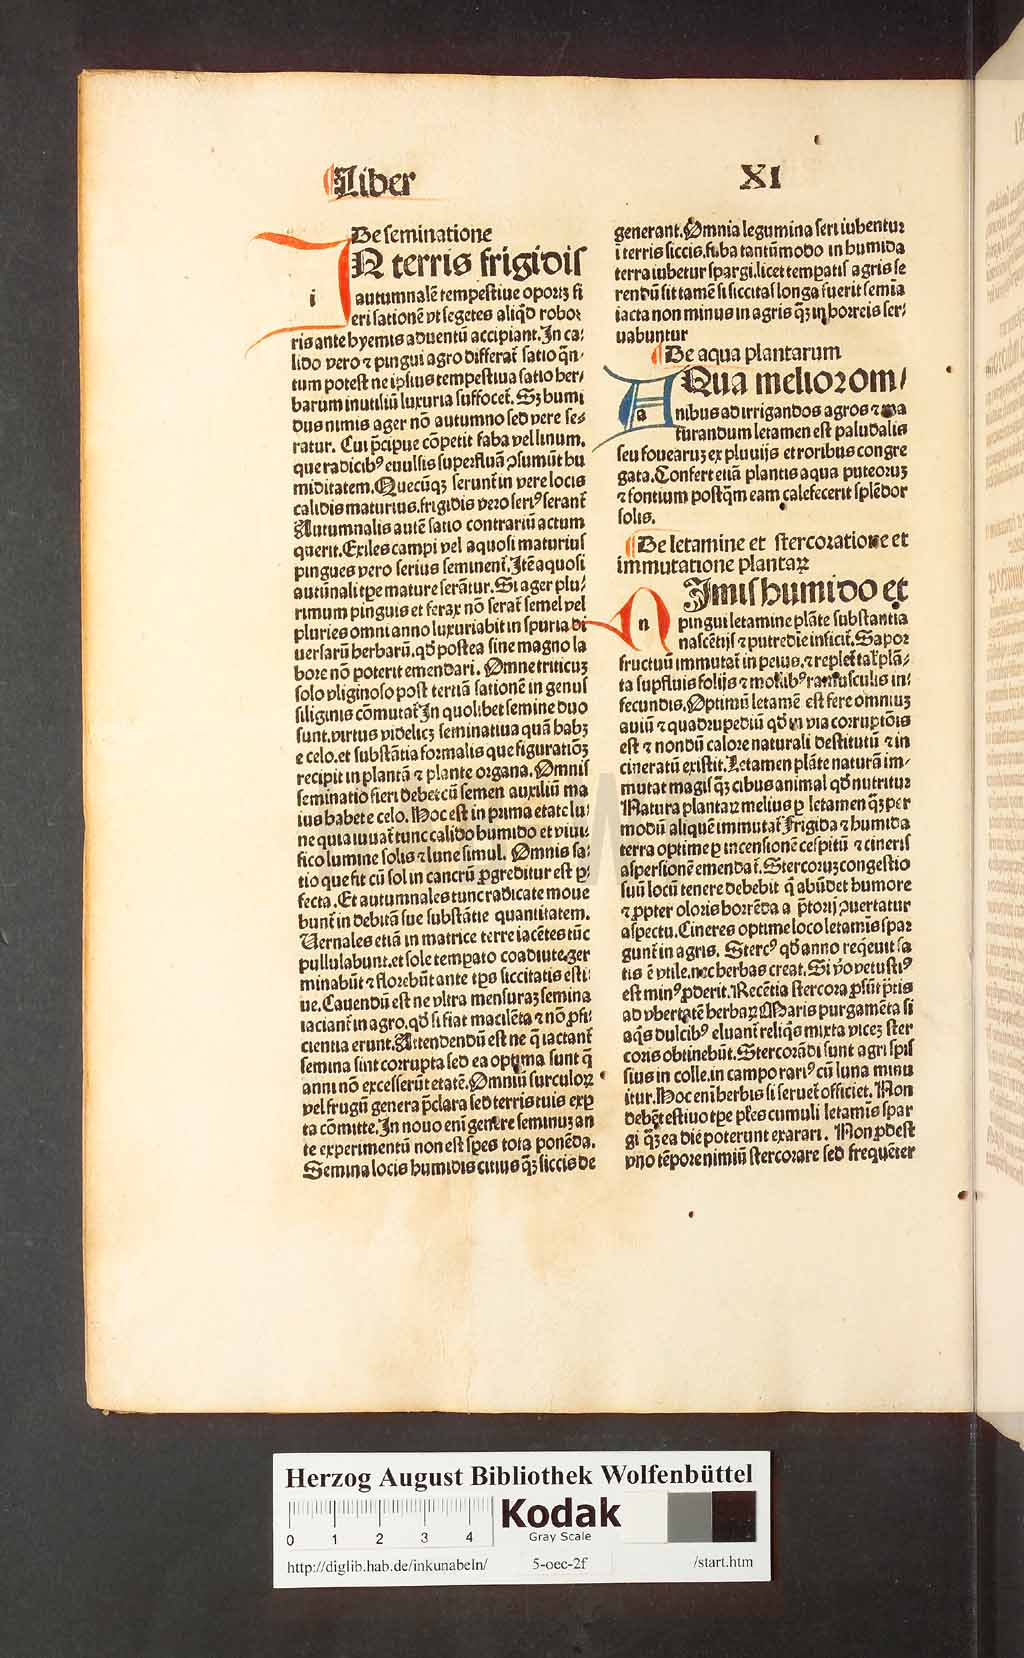 Liber
XI
De seminatione
IN terris frigidis
i autumnalē tempestiue oporꝫ fi
eri satione vt segetes aliq̄d robo⸗
ris ante hyemis aduentū accipiant. In ca⸗
lido vero ⁊ pingui agro differat᷑ satio q̄n⸗
tum potest ne ipsius tempestiua satio her⸗
barum inutiliū luxuria suffocet᷑. Sꝫ humi
dus nimis ager nō autumno sed vere se⸗
ratur. Cui p̄cipue cōpetit faba vel linum.
que radicibꝰ euulsis superfluā ↄsumūt hu
miditatem. Quecūqꝫ serunt᷑ in vere locis
calidis maturius. frigidis vero seriꝰ serant᷑
Autumnalis autē satio contrariū actum
querit. Exiles campi vel aquosi maturius
pingues vero serius seminent᷑. Itē aquosi
autūnali tp̄e mature serāt᷑ur. Si ager plu⸗
rimum pinguis et ferax nō serat᷑ semel vel
pluries omni anno luxuriabit in spuria di
uersarū herbarū. qd̄ postea sine magno la
bore nō poterit emendari. Omne triticuꝫ
solo vliginoso post tertiā sationē in genus
siliginis cōmutat᷑ In quolibet semine duo
sunt. virtus videlicꝫ seminatiua quā habꝫ
e celo. et substātia formalis que figuratiōꝫ
recipit in plantā ⁊ plante organa. Omnis
seminatio fieri debet cū semen auxiliū ma
ius habet e celo. Hoc est in prima etate lu⸗
ne quia iuuat᷑ tunc calido humido et viui⸗
fico lumine solis ⁊ lune simul. Omnis sa⸗
tio que fit cū sol in cancrū ꝓgreditur est ꝑ⸗
fecta. Et autumnales tunc radicate moue
bunt᷑ in debitā sue substātie quantitatem.
Uernales etiā in matrice terre iacētes tūc
pullulabunt. et sole tempato coadiute. ger
minabūt ⁊ florebūt ante tp̄s siccitatis esti⸗
ue. Cauendū est ne vltra mensuraꝫ semina
iaciant᷑ in agro. qd̄ si fiat macilēta ⁊ nō ꝓfi⸗
cientia erunt. Attendendū est ne q̄ iactant᷑
semina sint corrupta sed ea optima sunt q̄
anni nō excesserūt etatē. Omniū surculoꝝ
vel frugū genera p̄clara sed terris tuis exp̄
ta cōmitte. In nouo enī genere seminuꝫ an
te experimentū non est spes tota ponēda.
Semina locis humidis citius q̄ꝫ siccis de
generant. Omnia legumina seri iubentur
ī terris siccis. faba tantūmodo in humida
terra iubetur spargi. licet tempatis agris se
rendū sit tamē si siccitas longa fuerit semīa
iacta non minus in agris q̄ꝫ in horreis ser⸗
uabuntur
De aqua plantarum
AQua melior om⸗
a nibus ad irrigandos agros ⁊ ma
turandum letamen est paludalis
seu fouearuꝫ ex pluuijs et roribus congre
gata. Confert etiā plantis aqua puteoruꝫ
⁊ fontium postq̄m eam calefecerit splēdor
solis.
De letamine et stercoratione et
immutatione plantaꝝ
NImis humido et
n pingui letamine plāte substantia
nascētijs ⁊ putredīe inficit᷑. Sapor
fructuū immutat᷑ in peius. ⁊ replet᷑ tal' plā⸗
ta supfluis folijs ⁊ mollibꝰ ramusculis in⸗
fecundis. Optimū letamē est fere omniuꝫ
auiū ⁊ quadrupediū qd̄ in via corruptōis
est ⁊ nondū calore naturali destitutū ⁊ in
cineratū existit. Letamen plāte naturā im⸗
mutat magis q̄ꝫ cibus animal qd̄ nutritur
Natura plantaꝝ melius ꝑ letamen q̄ꝫ per
modū aliquē immutat᷑ Frigida ⁊ humida
terra optime ꝑ incensionē cespitū ⁊ cineris
aspersionē emendat᷑. Stercoruꝫ congestio
suū locū tenere debebit q̄ abūdet humore
⁊ ꝓpter oloris horrēda a p̄torij ↄuertatur
aspectu. Cineres optime loco letamīs spar
gunt᷑ in agris. Stercꝰ qd̄ anno reqeuit sa
tis ē vtile. nec herbas creat. Si v̄o vetustiꝰ
est minꝰ ꝓderit. Recētia stercora ꝓsūt p̄tis
ad vbertatē herbaꝝ Maris purgamēta si
aqs dulcibꝰ eluant᷑ reliqs mixta viceꝫ ster
coris obtinebūt. Stercorādi sunt agri spis
sius in colle. in campo rariꝰ cū luna minu
itur. Hoc enī herbis si seruet᷑ officiet. Non
debēt estiuo tp̄e pl'es cumuli letamīs spar
gi q̄ꝫ ea die poterunt exarari. Non ꝓdest
vno tēpore nimiū stercorare sed frequēter
Herzog August Bibliothek Wolfenbüttel
0 1 2 3 4
Kodak
Gray Scale
http://diglib.hab.de/inkunabeln/ 5-oec-2f /start.htm